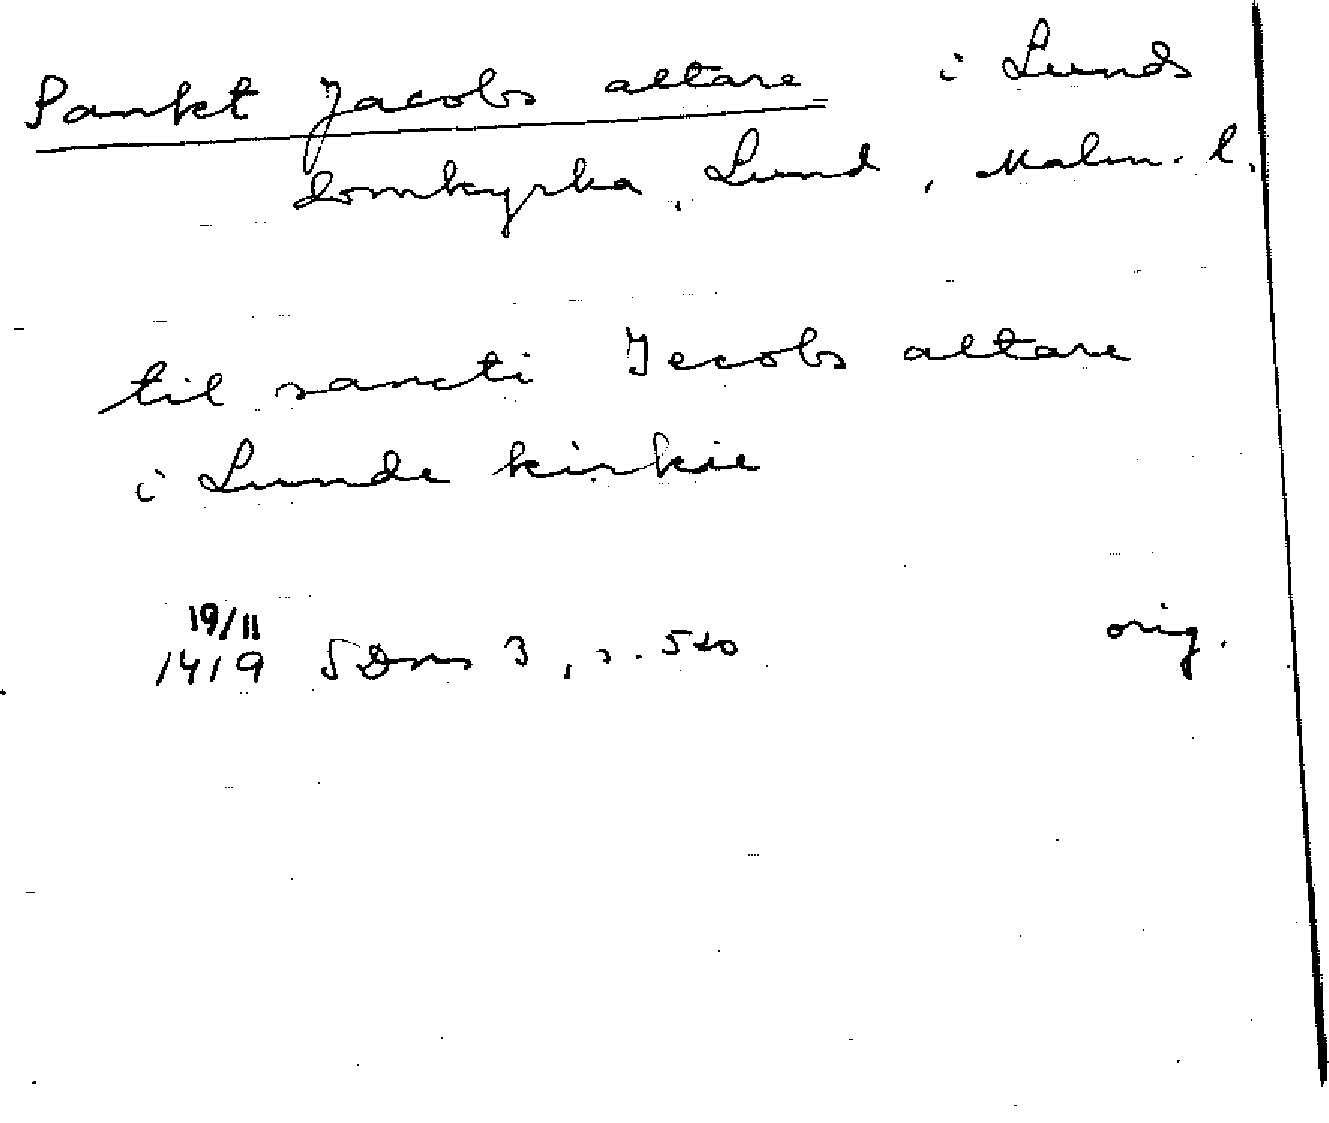 Sankt Jacobs altare i Lunds
domkyrka, Lund, Malm. l.
til sancti Jecobs altare
i Lunde kirkie
19/11
1419 SDns 3, s. 520 orig.